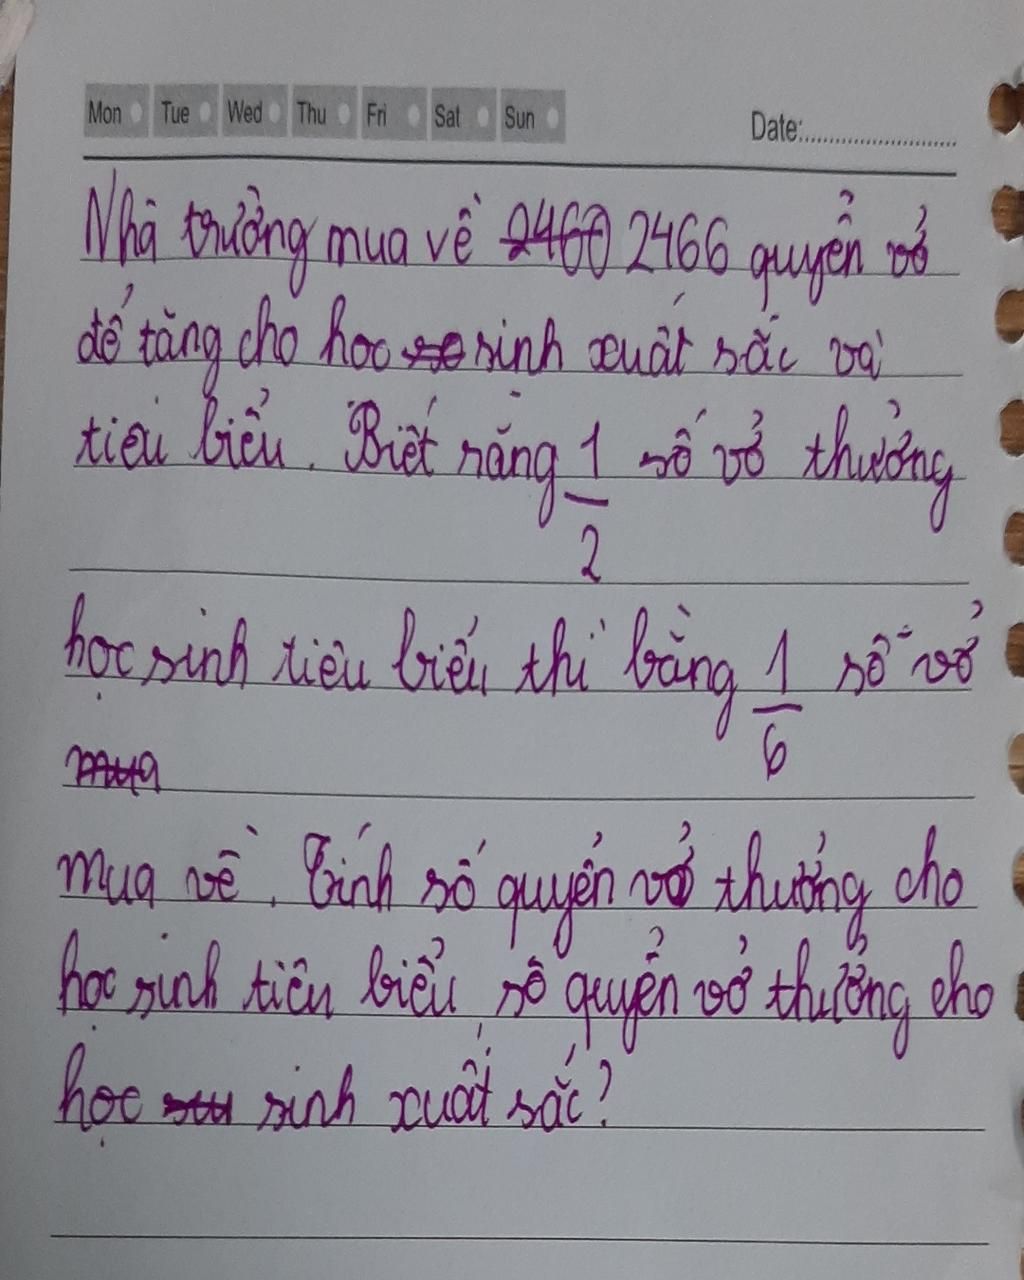 Mon Tue Wed Thu Fri Sat Sun Date:
Nhà trường mua về 2460 2466 quyển vở
để tặng cho học sinh xuất sắc và
tiêu biểu. Biết rằng 1/2 số vở thưởng
học sinh tiêu biểu thì bằng 1/6 số vở
mua
mua về. Tính số quyển vở thưởng cho
học sinh tiêu biểu số quyển vở thưởng cho
học sinh xuất sắc?